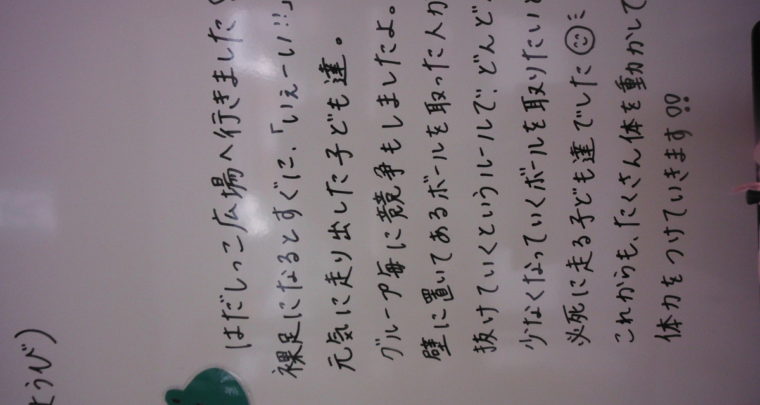 ようび)
はだしっこ広場へ行きました
裸足になるとすぐに、「いぇーい!!」
元気に走り出した子ども達。
グループ毎に競争もしましたよ。
壁に置いてあるボールを取った人が
抜けていくというルールで、どんど
少なくなっていくボールを取りたいと
必死に走る子ども達でした
これからも、たくさん体を動かして
体力をつけていきます!!